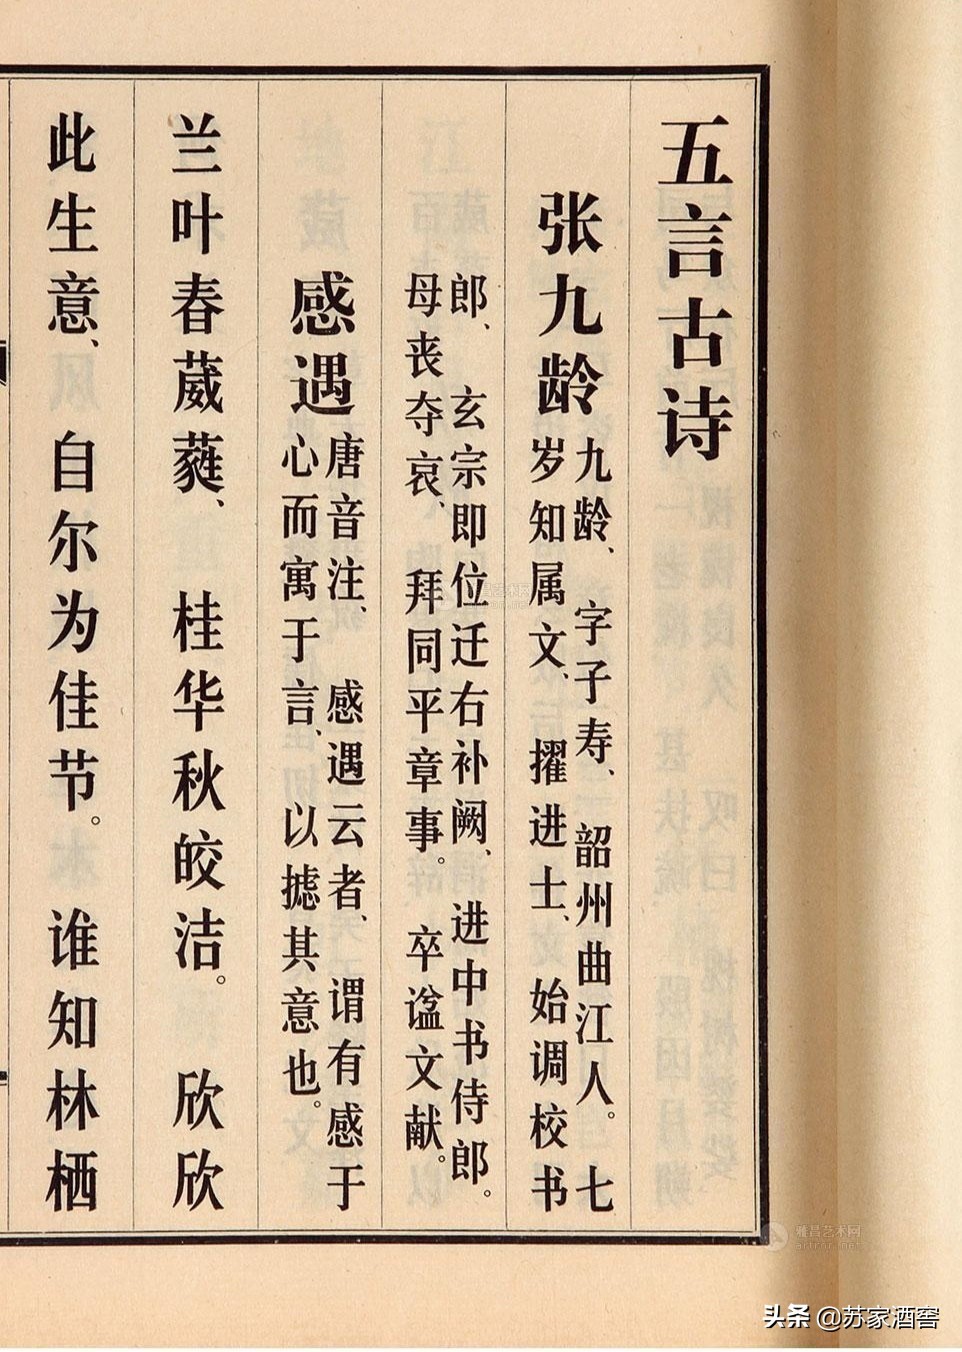 五言古诗
张九龄
九龄、字子寿、韶州曲江人。七
岁知属文、擢进士、始调校书
郎、玄宗即位迁右补阙、进中书侍郎。
母丧夺哀、拜同平章事。卒谥文献。
感遇
唐音注、感遇云者、谓有感于
心而寓于言、以摅其意也。
兰叶春葳蕤、桂华秋皎洁。欣欣
此生意、自尔为佳节。谁知林栖
雅昌艺术网
artron.net
头条 @苏家酒窖